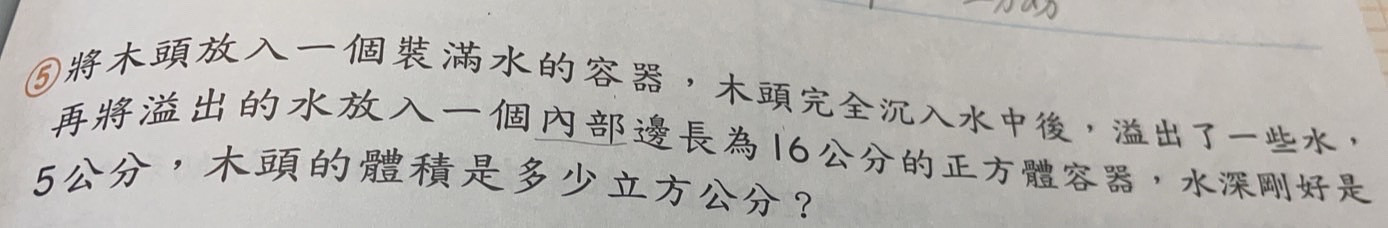 ⑤將木頭放入一個裝滿水的容器，木頭完全沉入水中後，溢出了一些水，
再將溢出的水放入一個內部邊長為16公分的正方體容器，水深剛好是
5公分，木頭的體積是多少立方公分？